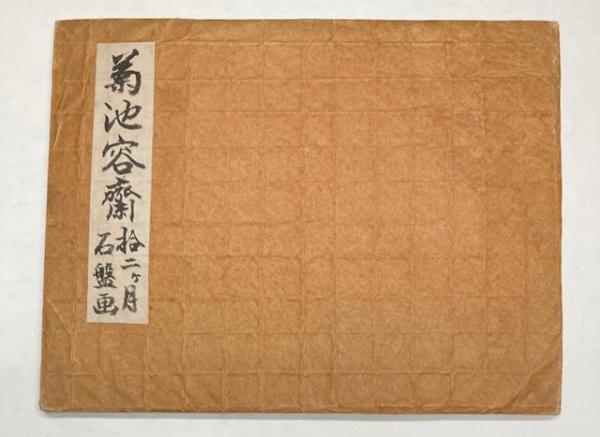 菊池容齋
拾二ヶ月
石盤画